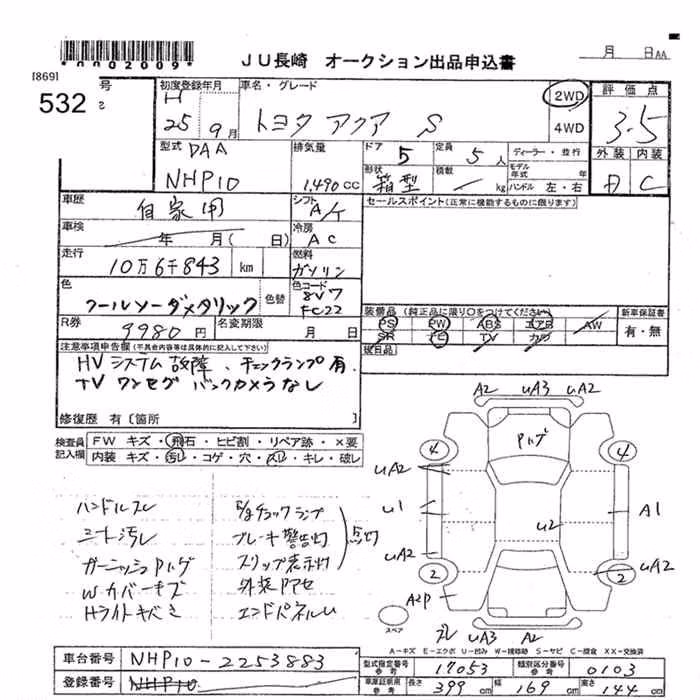 *ᑎᑎ02009*
JU長崎 オークション出品申込書
月 日AA
[869]
532
号
初度登録年月
H
25年9月
車名・グレード
トヨタ アクア S
2WD
4WD
評価点
3.5
外装 内装
D C
型式
DAA
NHP10
排気量
1,490cc
ドア
5
定員
5人
ディーラー・並行
形状
箱型
積載
kg
モデル年式 年
ハンドル 左・右
車歴
自家用
シフト
A/T
セールスポイント(正常に機能するものに限ります)
車検
年 月( 日)
冷房
AC
走行
10万6千843 km
燃料
ガソリン
色
クールソーダメタリック
色替
色コード
8V7
FC22
装備品(純正品に限り〇をつけてください)
PS PW ABS エアB AW
SR ナビ TV カワ
新車保証書
有・無
R券
9980円
名変期限
月 日
欠品
注意事項申告欄(不具合内容等は具体的に記入して下さい)
HVシステム故障、チェックランプ有.
TV ワンセグ バックカメラなし
修復歴 有[箇所 ]
検査員記入欄
FW キズ・飛石・ヒビ割・リペア跡・×要
内装 キズ・汚れ・コゲ・穴・スレ・キレ・破レ
ハンドルスレ
シート汚レ
ガーニッシュPハゲ
Wカバーキズ
Hライトキバミ
チェックランプ
ブレーキ警告灯
スリップ表示灯
点灯
エンドパネルU
A2 UA3 UA2
Pハゲ
4 4
UA2
U1
U2
A1
UA2
2 2
UA2
A2P
スペア
UA3 A2
A-キズ E-エクボ U-凹み W-補修跡 S-サビ C-腐食 XX-交換済
車台番号
NHP10-2253883
型式指定番号
参考
17053
類別区分番号
参考
0103
登録番号
NHP10
車庫証明用
参考
長さ
399cm
幅
169cm
高さ
144cm